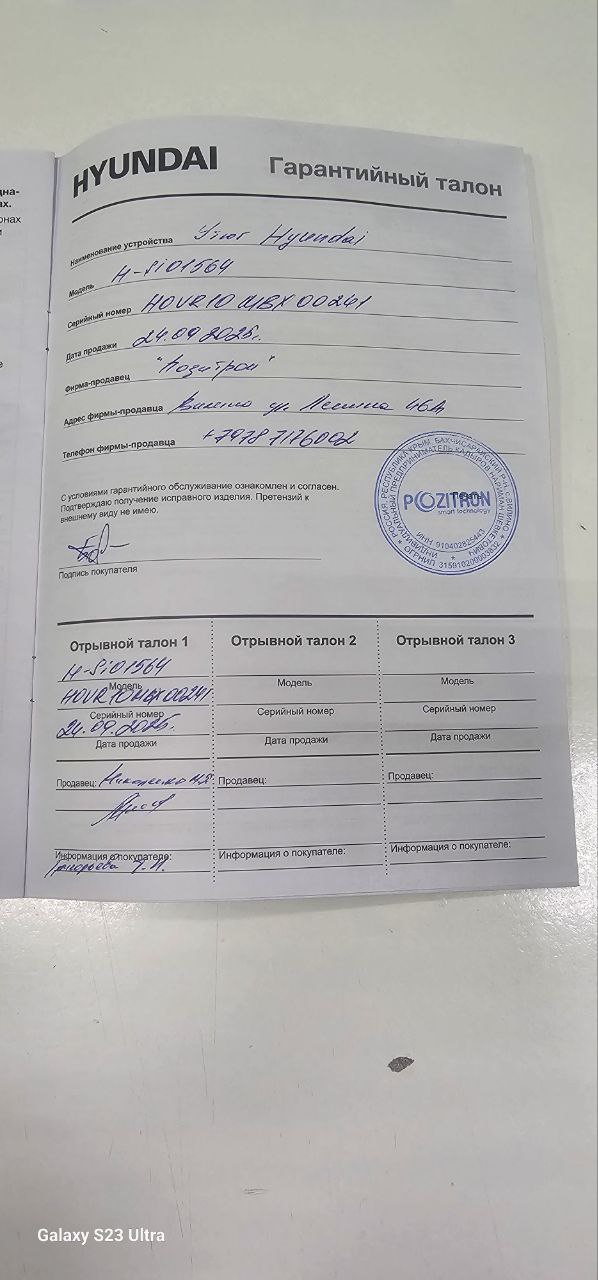 дна-
ах.
онах
HYUNDAI
Гарантийный талон
Наименование устройства Утюг Hyundai
Модель H-Si01564
Серийный номер
Дата продажи 24.09.2025г.
Фирма-продавец "Позитрон"
Адрес фирмы-продавца Вилино ул. Ленина 46А
Телефон фирмы-продавца +79787176002
С условиями гарантийного обслуживание ознакомлен и согласен.
Подтверждаю получение исправного изделия. Претензий к
внешнему виду не имею.
Подпись покупателя
РОССИЯ, РЕСПУБЛИКА КРЫМ, БАХЧИСАРАЙСКИЙ Р-Н, с.ВИЛИНО
ИНДИВИДУАЛЬНЫЙ ПРЕДПРИНИМАТЕЛЬ КАДЫРОВ НАРИМАН ШЕВКЕТОВИЧ
POZITRON
smart technology
ИНН 910402825443
Отрывной талон 1
H-Si01564
Модель
Серийный номер
24.09.2025г.
Дата продажи
Продавец:
Информация о покупателе:
Григорьева
Отрывной талон 2
Модель
Серийный номер
Дата продажи
Продавец:
Информация о покупателе:
Отрывной талон 3
Модель
Серийный номер
Дата продажи
Продавец:
Информация о покупателе:
Galaxy S23 Ultra